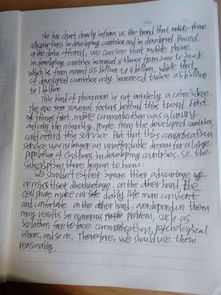 The bar chart clearly informs us the trend that mobile-phone
subscriptions in developing countries and in developed. Based
on the data offered, we can see that mobile phone
in developing countries increased 4 times from 2000 to 2008,
which is from around 1 billion to 4 billion, while that
of developed countries only increased twice 1 billion
to 1 billion
This kind of phenomenon is not entirely a coincidence.
There are several factors behind this trend. First
of things first, mobile communication was a luxury
only the minority, people from the developed countries,
could afford this service. But that this communication
service was no longer an unaffordable dream for a large
population of customs in developing countries. So the
subscription there began to boom.
We shouldn't either ignore this advantage or
or miss that disadvantage. On the other hand the
cell phone makes our life daily life more convenient
and comfortable. On the other hand, overdependent on them
may results in numerous problem, such as
isolation face-to-face communication, psychological
illness, and so on. Therefore, we should use them
reasonably.